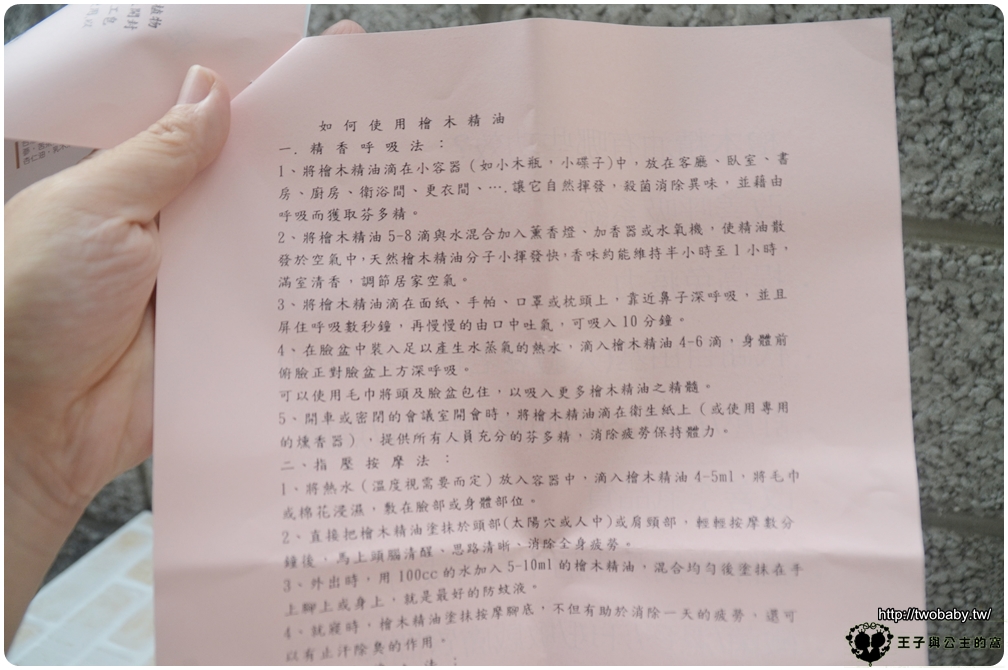 植物
開封
如何使用檜木精油
一.精香呼吸法：
1、將檜木精油滴在小容器(如小木瓶，小碟子)中，放在客廳、臥室、書
房、廚房、衛浴間、更衣間、….讓它自然揮發，殺菌消除異味，並藉由
呼吸而獲取芬多精。
2、將檜木精油5-8滴與水混合加入薰香燈、加香器或水氧機，使精油散
發於空氣中，天然檜木精油分子小揮發快，香味約能維持半小時至1小時，
滿室清香，調節居家空氣。
3、將檜木精油滴在面紙、手帕、口罩或枕頭上，靠近鼻子深呼吸，並且
屏住呼吸數秒鐘，再慢慢的由口中吐氣，可吸入10分鐘。
4、在臉盆中裝入足以產生水蒸氣的熱水，滴入檜木精油4-6滴，身體前
俯臉正對臉盆上方深呼吸。
可以使用毛巾將頭及臉盆包住，以吸入更多檜木精油之精髓。
5、開車或密閉的會議室開會時，將檜木精油滴在衛生紙上（或使用專用
的燻香器），提供所有人員充分的芬多精，消除疲勞保持體力。
二、指壓按摩法：
1、將熱水（溫度視需要而定）放入容器中，滴入檜木精油4-5ml，將毛巾
或棉花浸濕，敷在臉部或身體部位。
2、直接把檜木精油塗抹於頭部(太陽穴或人中)或肩頸部，輕輕按摩數分
鐘後，馬上頭腦清醒、思路清晰、消除全身疲勞。
3、外出時，用100cc的水加入5-10ml的檜木精油，混合均勻後塗抹在手
上腳上或身上，就是最好的防蚊液。
4、就寢時，檜木精油塗抹按摩腳底，不但有助於消除一天的疲勞、還可
以有止汗除臭的作用。
法：
http://twobaby.tw/
王子與公主的窩